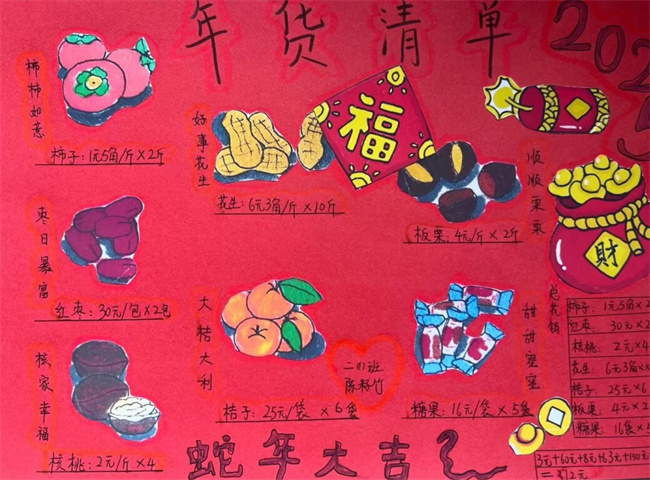 年货清单
202
柿柿如意
柿子：1元5角/斤×2斤
好事花生
花生：6元3角/斤×10斤
福
顺顺栗栗
板栗：4元/斤×2斤
财
枣日暴富
红枣：30元/包×2包
大桔大利
桔子：25元/袋×6袋
甜甜蜜蜜
糖果：16元/袋×5袋
核家幸福
核桃：2元/斤×4
蛇年大吉
柿子：1元5角×2
红枣：30元×2
核桃：2元×4
花生：6元3角×
桔子：25元×6
板栗：4元×2
糖果：16袋×
3元+60元+8元+63元+150元
=372元